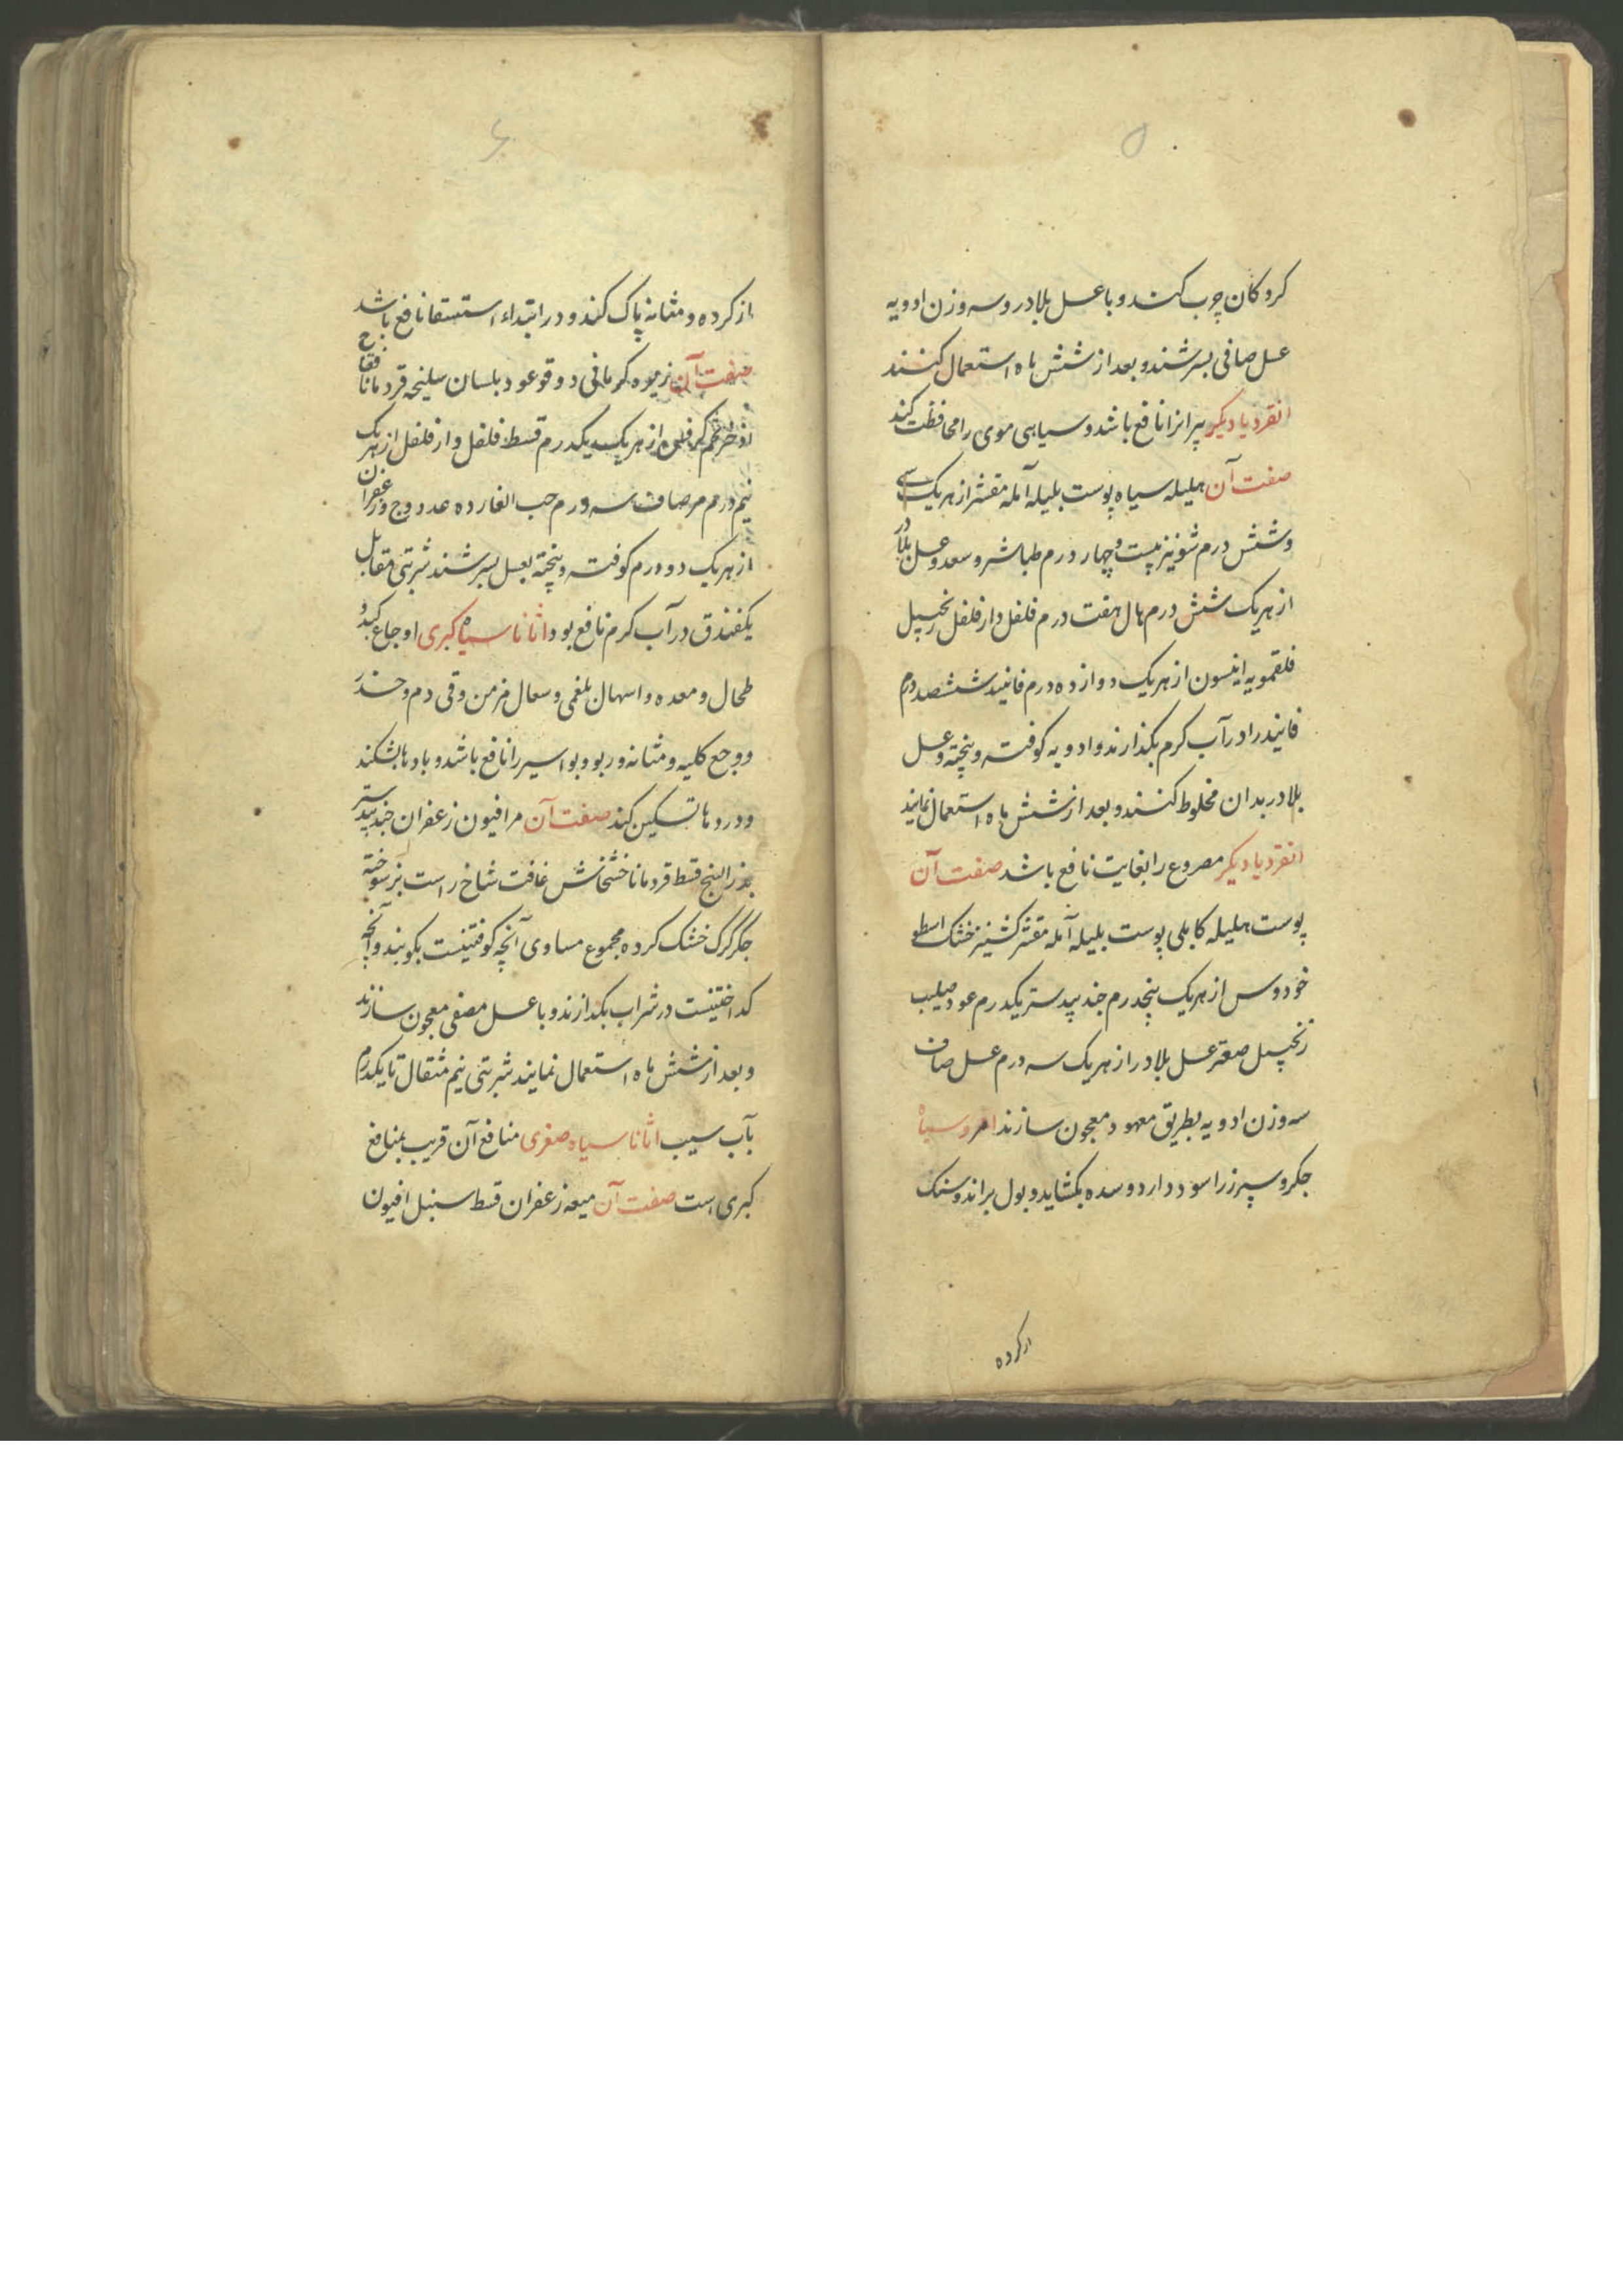 ۵
کردکان چرب کنند و با عسل بلادر و سه وزن ادویه
عسل صافی بسرشند و بعد از شش ماه استعمال کنند
انقردیا دیکر پیرانرا نافع باشد و سیاهی موی را محافظت کند
صفت آن هلیله سیاه پوست بلیله آمله مقشر از هریک سی
و شش درم شونیز بیست و چهار درم طباشر و سعد و عسل بلادر
از هریک شش درم هال هفت درم فلفل دارفلفل زنجبیل
فلقمویه انیسون از هریک دوازده درم فانید ششصد درم
فانیدرا در آب کرم بکذارند و ادویه کوفته و پخته و عسل
بلادر بدان مخلوط کنند و بعد از شش ماه استعمال نمایند
انقردیا دیکر مصروع را بغایت نافع باشد صفت آن
پوست هلیله کابلی پوست بلیله آمله مقشر کشنیز خشک اسطو
خودوس از هریک پنجدرم جند بیدستر یکدرم عود صلیب
زنجبیل صعتر عسل بلادر از هریک سه درم عسل صاف
سه وزن ادویه بطریق معهود معجون سازند امروسیاه
جکر و سپرز را سود دارد و سده بکشاید و بول براند و سنک
از کرده
۶
از کرده و مثانه پاک کند و در ابتداء استسقا نافع باشد
صفت آن زیره کرمانی دوقو عود بلسان سلیخه قردمانا فقاح
اذخر تخم کرفس از هریک یکدرم قسط فلفل دارفلفل از هریک
نیم درم مر صاف سه درم حب الغار ده عدد وج زعفران
از هریک دو درم کوفته و پخته بعسل بسرشند شربتی مقابل
یکفندق در آب کرم نافع بود اثاناسیاه کبری اوجاع کبد و
طحال و معده و اسهال بلغمی و سعال مزمن و قی دم و خدر
و وجع کلیه و مثانه و ربو و بواسیر را نافع باشد و بادها بشکند
و دردها تسکین کند صفت آن مر افیون زعفران جند بیدستر
بذر البنج قسط قردمانا خشخاش غافت شاخ راست بز سوخته
جکر کرک خشک کرده مجموع مساوی آنچه کوفتنیست بکوبند و آنچه
کداختنیست در شراب بکدازند و با عسل مصفی معجون سازند
و بعد از شش ماه استعمال نمایند شربتی نیم مثقال تا یکدرم
بآب سیب اثاناسیاه صغری منافع آن قریب بمنافع
کبری است صفت آن میعه زعفران قسط سنبل افیون